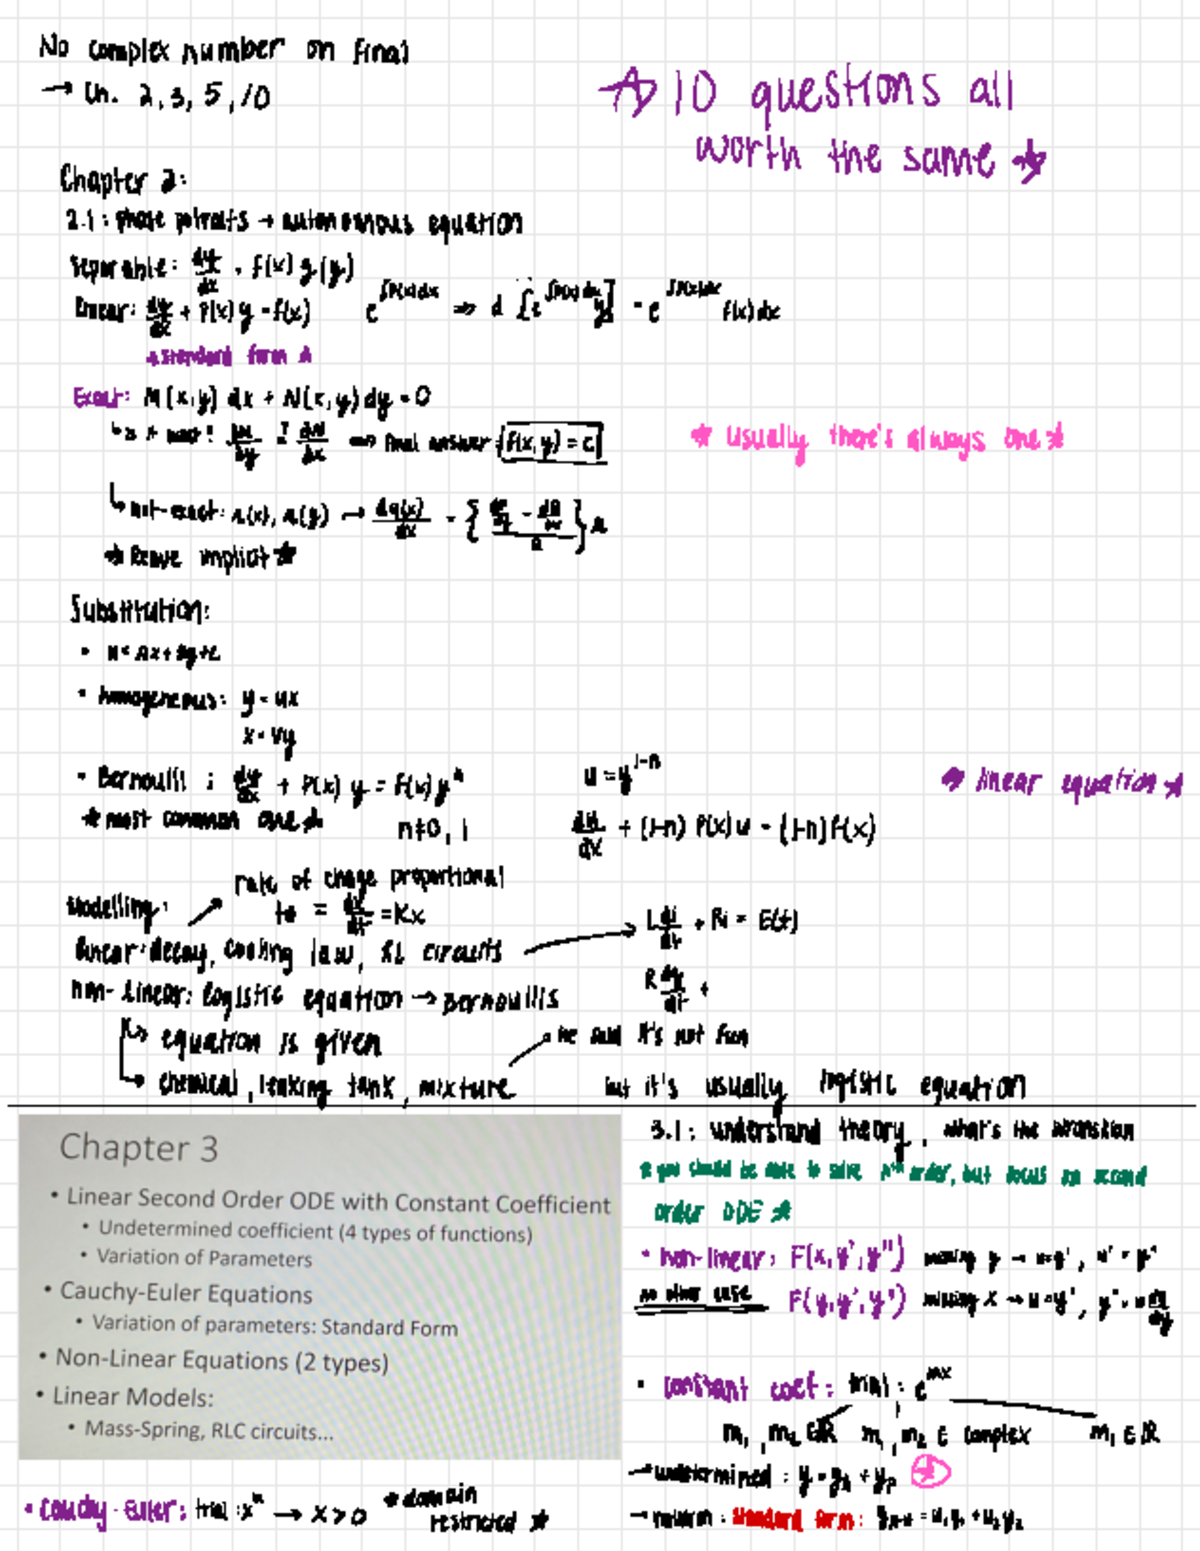 No complex number on final
→ Ch. 2, 3, 5, 10
☆ 10 questions all
worth the same ☆
Chapter 2:
2.1: phase potraits → autonomous equation
Separable: dy/dx = f(x) g(y)
linear: dy/dx + P(x) y = f(x)   e^∫P(x)dx ⇒ d [e^∫P(x)dx y] = e^∫P(x)dx f(x) dx
☆ standard form ☆
Exact: M(x,y) dx + N(x,y) dy = 0
final answer f(x,y) = c   ☆ usually there's always one ☆
↳ not-exact: u(x), u(y) →
☆ leave implicit ☆
Substitution:
• u = Ax + By + C
• homogeneous: y = ux
x = vy
• Bernoulli : dy/dx + P(x) y = f(x) yⁿ   u = y^1-n   ☆ linear equation ☆
☆ most common one ☆   n≠0, 1   du/dx + (1-n) P(x) u = (1-n) f(x)
rate of change proportional
Modelling: to = dx/dt = Kx
L di/dt + Ri = E(t)
linear: decay, cooling law, RL circuits
R dq/dt +
non-linear: logistic equation → bernoullis
↳ equation is given   he said it's not fun
↳ chemical, leaking tank, mixture   but it's usually logistic equation
Chapter 3
• Linear Second Order ODE with Constant Coefficient
• Undetermined coefficient (4 types of functions)
• Variation of Parameters
• Cauchy-Euler Equations
• Variation of parameters: Standard Form
• Non-Linear Equations (2 types)
• Linear Models:
• Mass-Spring, RLC circuits...
3.1: understand theory, what's the wronskian
☆ you should be able to solve nth order, but focus on second
order ODE ☆
• non-linear: F(x, y', y'') missing y → u=y', u' = y''
no other case F(y, y', y'') missing x → u=y', y'' = u du/dy
• constant coef: trial: e^mx
m₁, m₂ ∈ℝ   m₁, m₂ ∈ complex   m₁ ∈ ℝ
→ undetermined: y = yh + yp ☆
→ standard form:
• Cauchy-Euler: trial: x^m → x>0 ☆ domain
restricted ☆